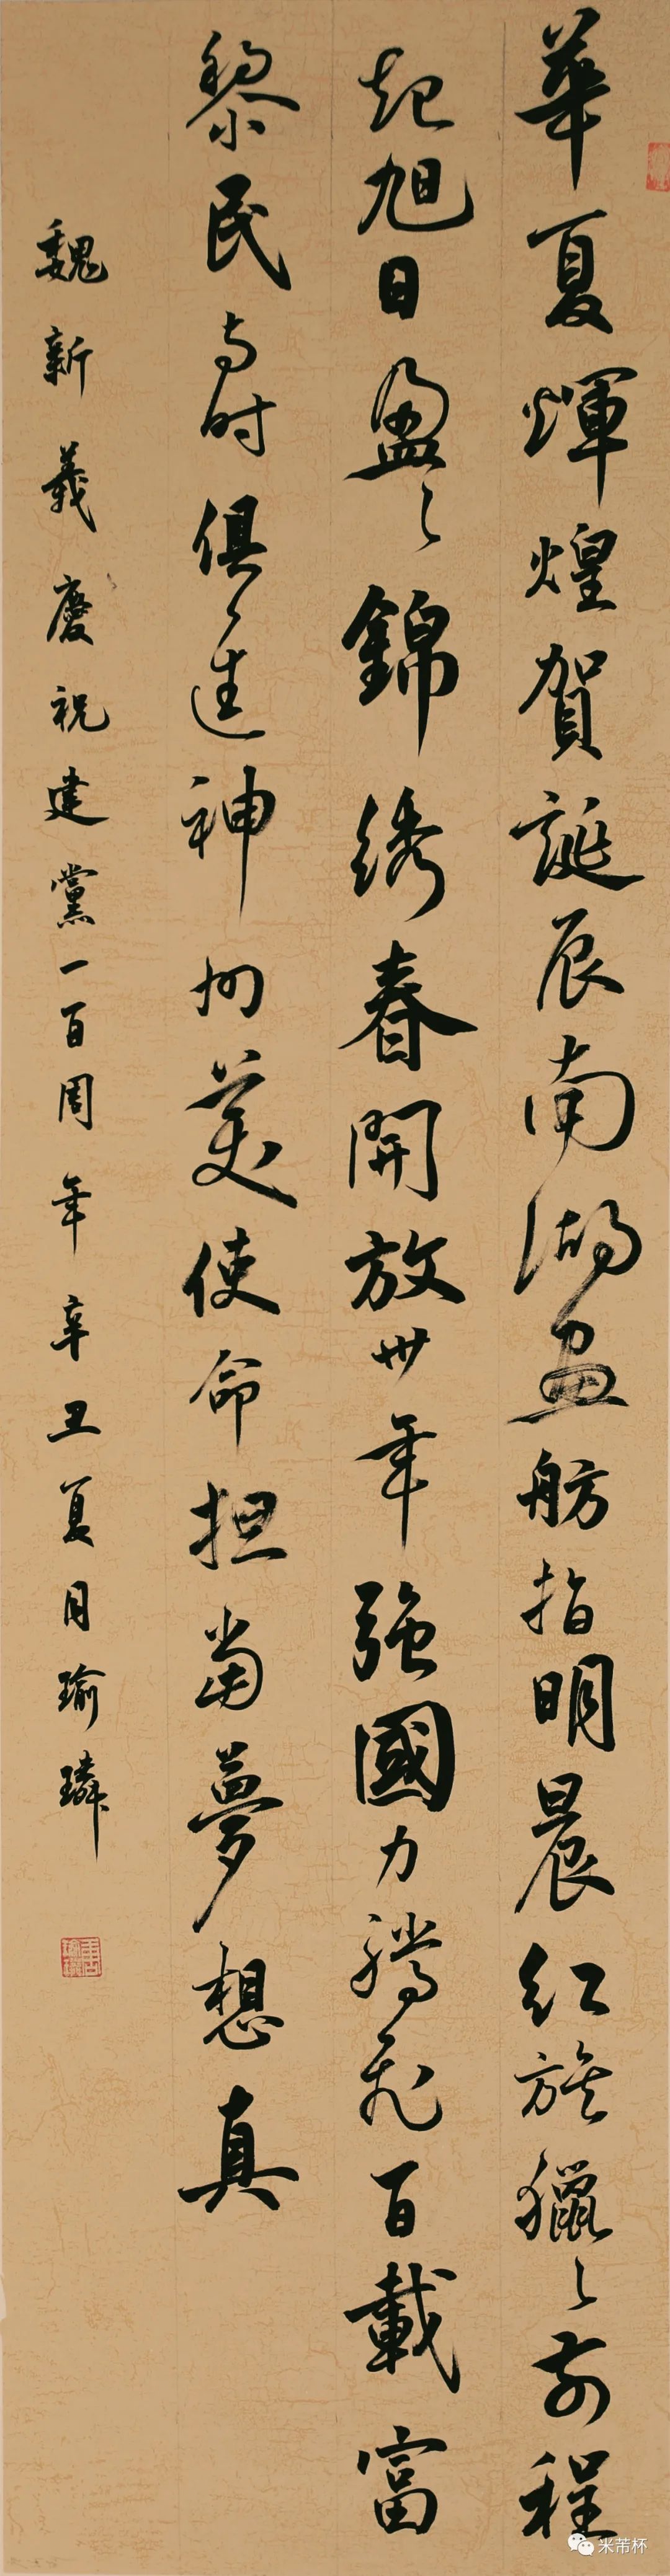 華夏輝煌賀誕辰南湖画舫指明晨红旗獵々前程
起旭日盈々錦绣春開放卅年強國力騰飛百載富
黎民与时俱進神州美使命担當夢想真
魏新義慶祝建黨一百周年辛丑夏月瑜璘
米芾杯